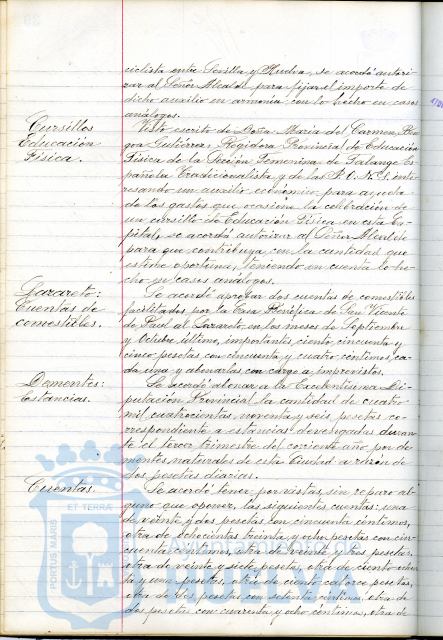 ciclista entre Sevilla y Huelva, se acordó autori-
zar al Señor Alcalde para fijar el importe de
dicho auxilio en armonía con lo hecho en casos
análogos.
Cursillos
Educación
Física.
Visto escrito de Doña María del Carmen
Gutiérrez, Regidora Provincial de Educación
Física de la Sección Femenina de Falange Es-
pañola Tradicionalista y de las J.O.N.S. inte-
resando un auxilio económico para ayuda
de los gastos que ocasione la celebración de
un cursillo de Educación Física en esta Ca-
pital, se acordó autorizar al Señor Alcalde
para que contribuya con la cantidad que
estime oportuna, teniendo en cuenta lo he-
cho en casos análogos.
Lazareto:
Cuentas de
comestibles.
Se acordó aprobar dos cuentas de comestibles
facilitados por la Casa Benéfica de San Vicente
de Paul al Lazareto en los meses de Septiembre
y Octubre último, importantes, ciento cincuenta y
cinco pesetas con cincuenta y cuatro céntimos, ca-
da una y abonarlas con cargo a imprevistos.
Dementes:
Estancias.
Se acordó abonar a la Excelentísima Di-
putación Provincial la cantidad de cuatro
mil cuatrocientas noventa y seis pesetas co-
rrespondiente a estancias devengadas duran-
te el tercer trimestre del corriente año por de-
mentes naturales de esta Ciudad a razón de
dos pesetas diarias.
Cuentas.
Se acordó tener por vistas, sin reparo al-
guno que oponer, las siguientes cuentas: una
de veinte y dos pesetas con cincuenta céntimos,
otra de ochocientas treinta y ocho pesetas con cin-
cuenta céntimos, otra de veinte y tres pesetas,
otra de veinte y siete pesetas, otra de ciento ochen-
ta y una pesetas, otra de ciento catorce pesetas,
otra de dos pesetas con setenta céntimos, otra de
dos pesetas con cuarenta y ocho céntimos, otra de
PORTUS MARIS
ET TERRÆ